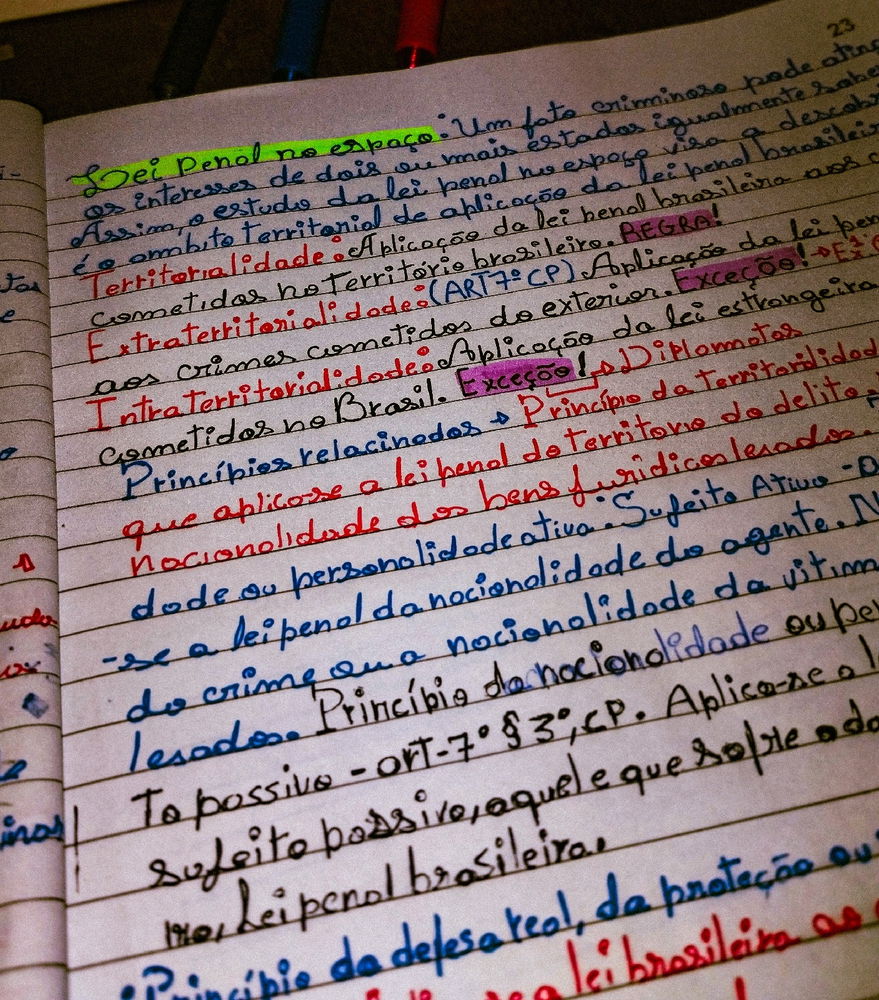 23
Lei penal no espaço: Um fato criminoso pode
os interesses de dois ou mais estados igualmente
Assim, o estudo da lei penal no espaço visa a
é o ambito territorial de aplicação da lei penal
Territorialidade: Aplicação da lei penal brasileira aos
cometidos no território brasileiro. REGRA!
Extraterritorialidade: (ART 7º CP). Aplicação da lei
aos crimes cometidos do exterior. Exceção! →
Intraterritorialidade: Aplicação da lei estrangeira
cometidos no Brasil. Exceção! → Diplomatas
Princípios relacinados → Princípio da
que aplica-se a lei penal do territorio do delito,
nacionalidade dos bens juridicos lesados.
dade ou personalidade ativa: Sujeito Ativo -
-se a lei penal da nacionalidade do agente.
do crime ou a nacionalidade da
lesados. Princípio da nacionalidade ou
To passivo - art-7º §3º, CP. Aplica-se a
sujeito passivo, aquele que sofre
Lei penal brasileira.
• Princípio da defesa real, da proteção ou
a lei brasileira